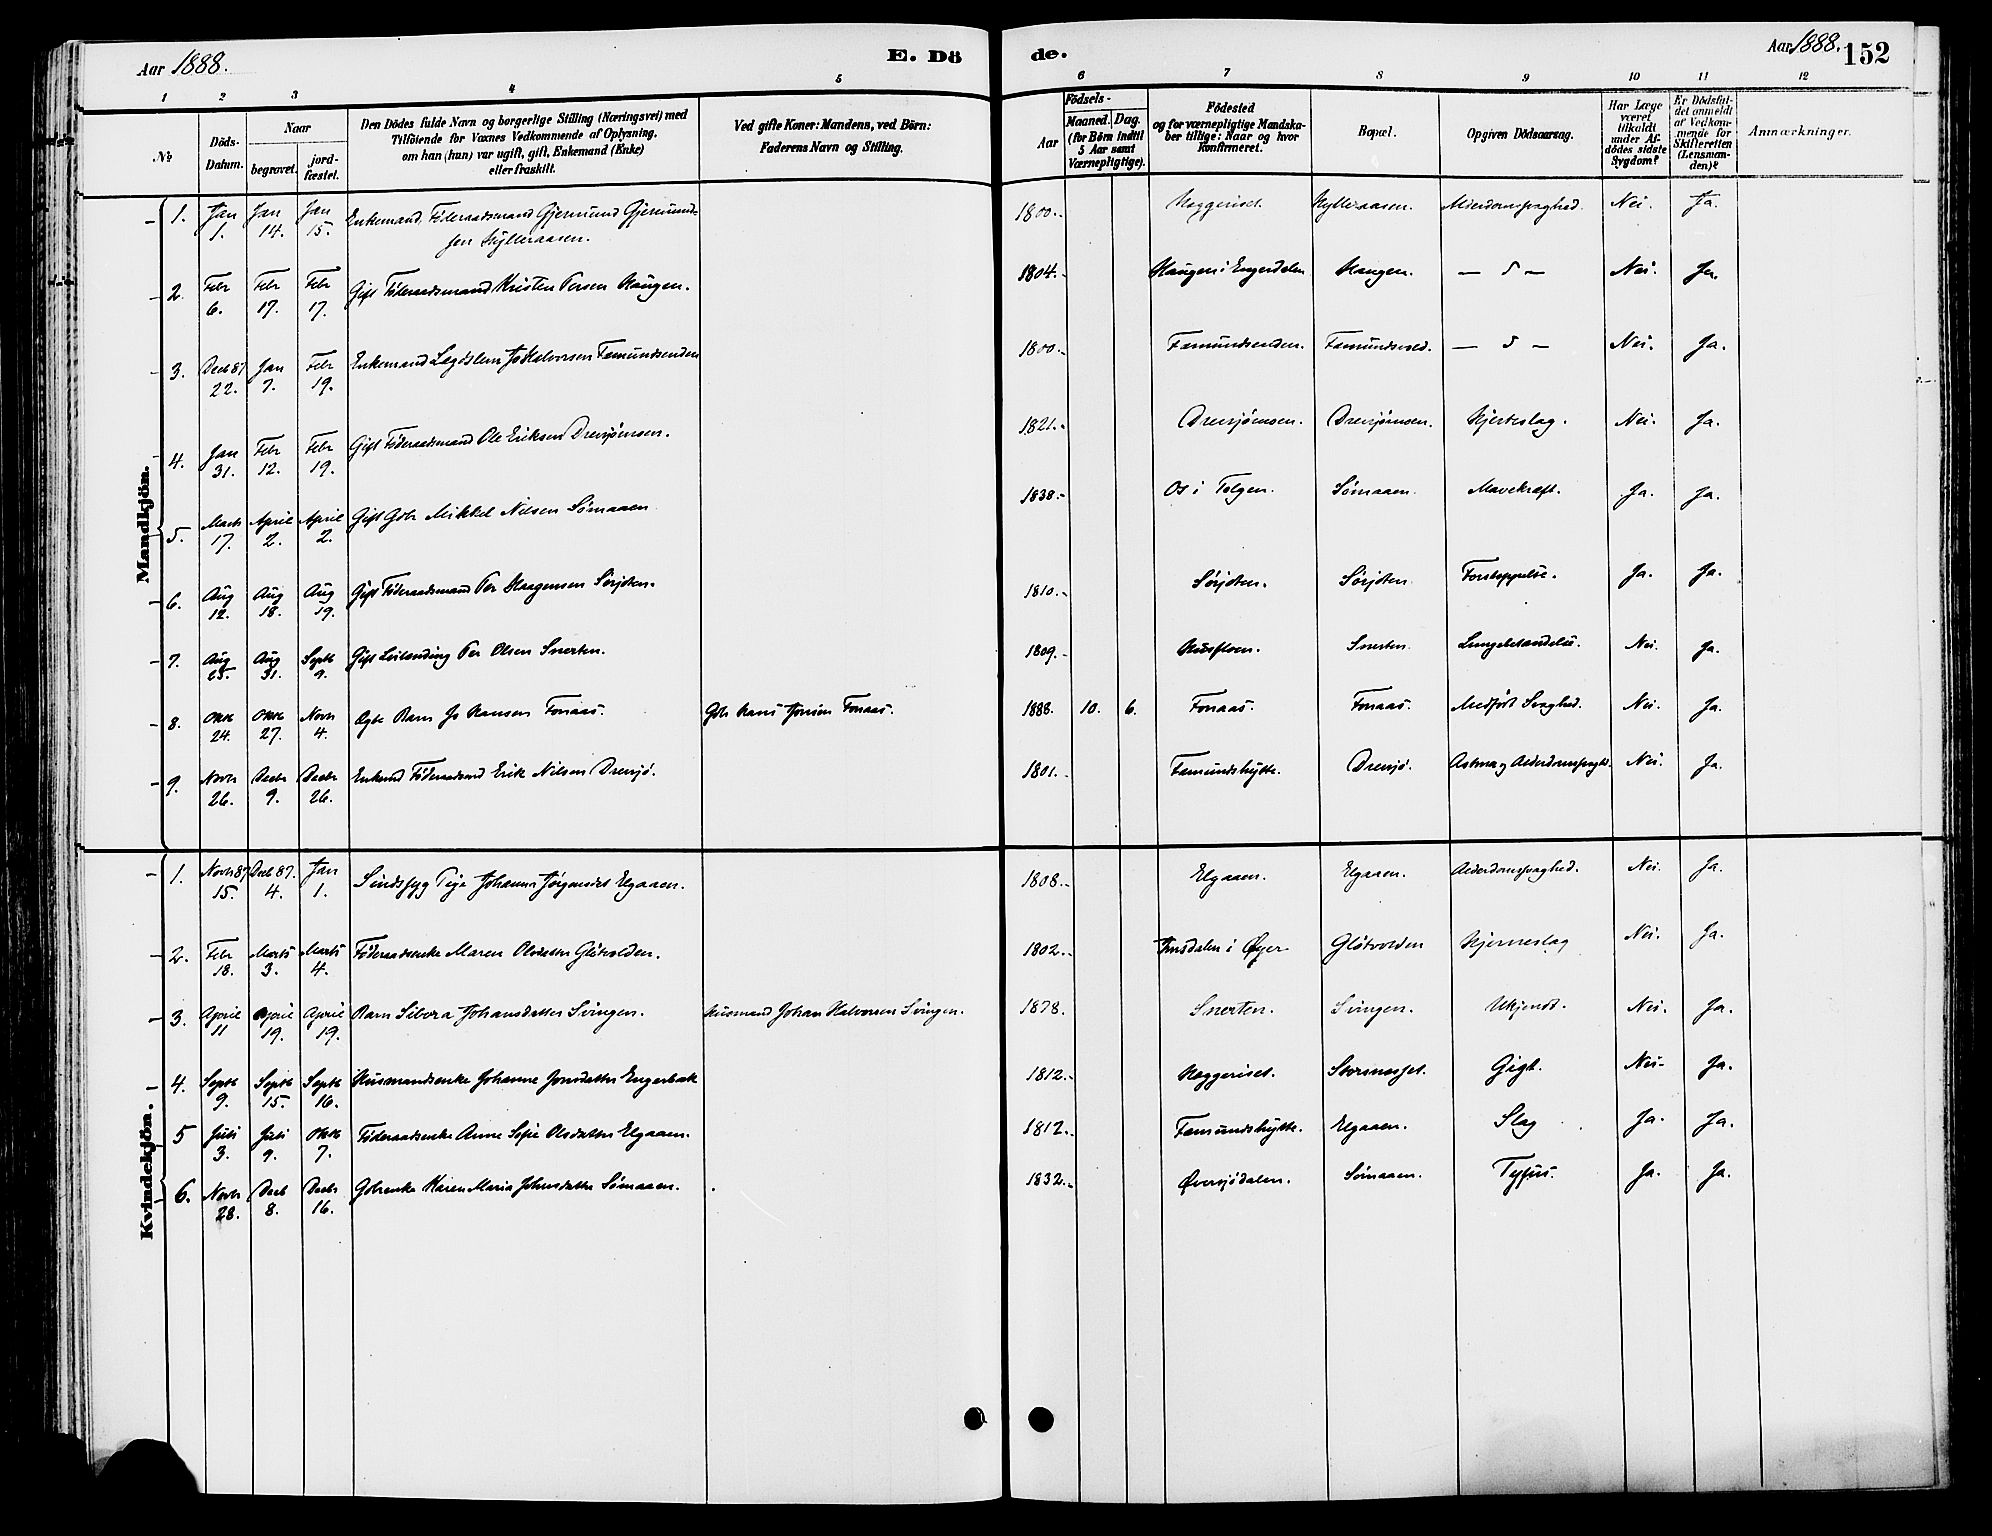 Aar 1888.
E. Dö
de.
Aar 1888. 152
1 2 3 4 5 6 7 8 9 10 11 12
№
Döds-Datum.
Naar
begravet.
jord-fæstet.
Den Dödes fulde Navn og borgerlige Stilling (Næringsvei) med
Tilföiende for Voxnes Vedkommende af Oplysning,
om han (hun) var ugift, gift, Enkemand (Enke)
eller fraskilt.
Ved gifte Koner: Mandens, ved Börn:
Faderens Navn og Stilling.
Födsels-
Aar
Maaned. Dag.
(for Börn indtil
5 Aar samt
Værnepligtige).
Födested
og for værnepligtige Mandska-
ber tillige: Naar og hvor
konfirmeret.
Bopæl.
Opgiven Dödsaarsag.
Har Læge
været
tilkaldt
under Af-
dödes sidste
Sygdom?
Er Dödsfal-
det anmeldt
af Vedkom-
mende for
Skifteretten
(Lensman-
den)?
Anmærkninger.
Mandkjön.
1. Jan 1. Jan 14. Jan 15. Enkemand Föderaadsmand Gjermund Gjermund-
sen Hylleraasen. 1800. Heggeriset. Hylleraasen. Alderdomssvaghed. Nei. Ja.
2. Febr 6. Febr 17. Febr 17. Gift Föderaadsmand Kristen Persen Haugen. 1804. Haugen i Engerdalen Haugen. — 5 — Nei. Ja.
3. Decb 87 22. Jan 7. Febr 19. Enkemand Lægdslem Jo Halvorsen Fæmundsenden 1800. Fæmundsenden. Fæmundsend. — 5 — Nei. Ja.
4. Jan 31. Febr 12. Febr 19. Gift Föderaadsmand Ole Eriksen Drevsjömoen. 1821. Drevsjömoen. Drevsjömoen. Hjerteslag. Nei. Ja.
5. Marts 17. April 2. April 2. Gift Gbr Mikkel Nilsen Sömaaen 1838. Os i Tolgen. Sömaaen. Mavekræft. Ja. Ja.
6. Aug 12. Aug 18. Aug 19. Gift Föderaadsmand Per Haagensen Sörjoten. 1810. Sörjoten. Sörjoten. Forstoppelse. Ja. Ja.
7. Aug 23. Aug 31. Septb 9. Gift Leilending Per Olsen Snerten. 1809. Husfloen. Snerten. Lungebetændelse. Nei. Ja.
8. Oktb 24. Oktb 27. Novb 4. Ægte Barn Jo Hansen Fonaas. Gbr Hans Jonsen Fonaas. 1888. 10. 6. Fonaas. Fonaas. Medfödt Svaghed. Nei. Ja.
9. Novb 26. Decbr 9. Decbr 26. Enkemd Föderaadsmd Erik Nilsen Drevsjö. 1801. Fæmundshytte. Drevsjö. Astma og Alderdomssvaghd. Nei. Ja.
Kvindekjön.
1. Novb 87 15. Decb 87. 4. Jan 1. Sindssyg Pige Johanna Jörgensdt Elgaaen. 1808. Elgaaen. Elgaaen. Alderdomssvaghed. Nei. Ja.
2. Febr 18. Marts 3. Marts 4. Föderaadsenke Maren Olsdatter Glötvolden. 1802. Imsdalen i Øyer Glötvolden Hjerneslag Nei. Ja.
3. April 11 April 19. April 19. Barn Sibera Johansdatter Svingen. Husmand Johan Halvorsen Svingen. 1878. Snerten. Svingen. Ukjendt. Nei. Ja.
4. Septb 9. Septb 15. Septb 16. Husmandsenke Johanne Jonsdatter Engerbæk 1812. Heggeriset. Storsnæsset. Gigt. Nei. Ja.
5 Juli 3. Juli 9. Oktb 7. Föderaadsenke Anne Sofie Olsdatter Elgaaen. 1812. Fæmundshytte. Elgaaen. Slag Ja. Ja.
6. Novb 28. Decb 8. Decbr 16. Gbrenke Karen Maria Johnsdatter Sömaaen. 1832. Øversjödalen. Sömaaen. Tyfus. Ja. Ja.